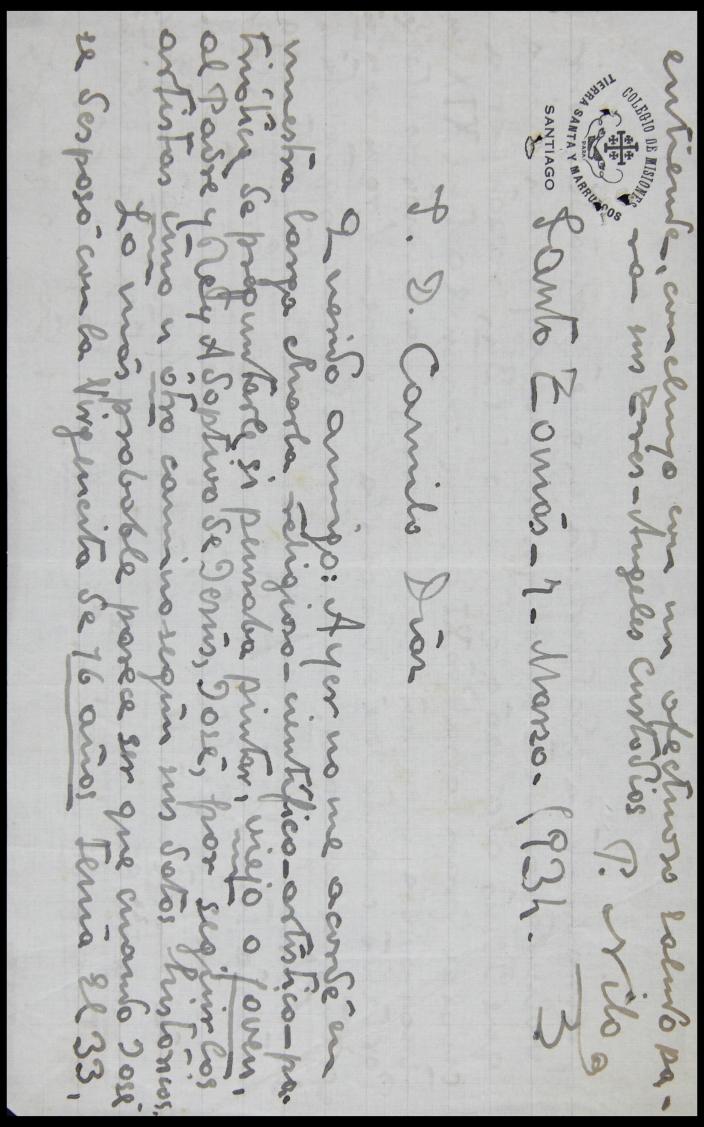 entiende, concluyo con un afectuoso saludo pa-
ra sus Tores-Angeles Custodios
P. Nilo
COLEGIO DE MISIONES
TIERRA SANTA Y MARRUECOS
PARA
SANTIAGO
Santo Tomás-7-Marzo-1934.
S. D. Camilo Díaz
Querido amigo: Ayer no me acordé en
nuestra larga charla religioso-científico-artístico-pa-
triótica de preguntarle si pensaba pintar, viejo o joven,
al Padre y Adoptivo de Jesús, José, por seguir los
artistas uno u otro camino según sus datos históricos.
Lo más probable parece ser que cuando José
se desposó con la Virgencita de 16 años tenía El 33,